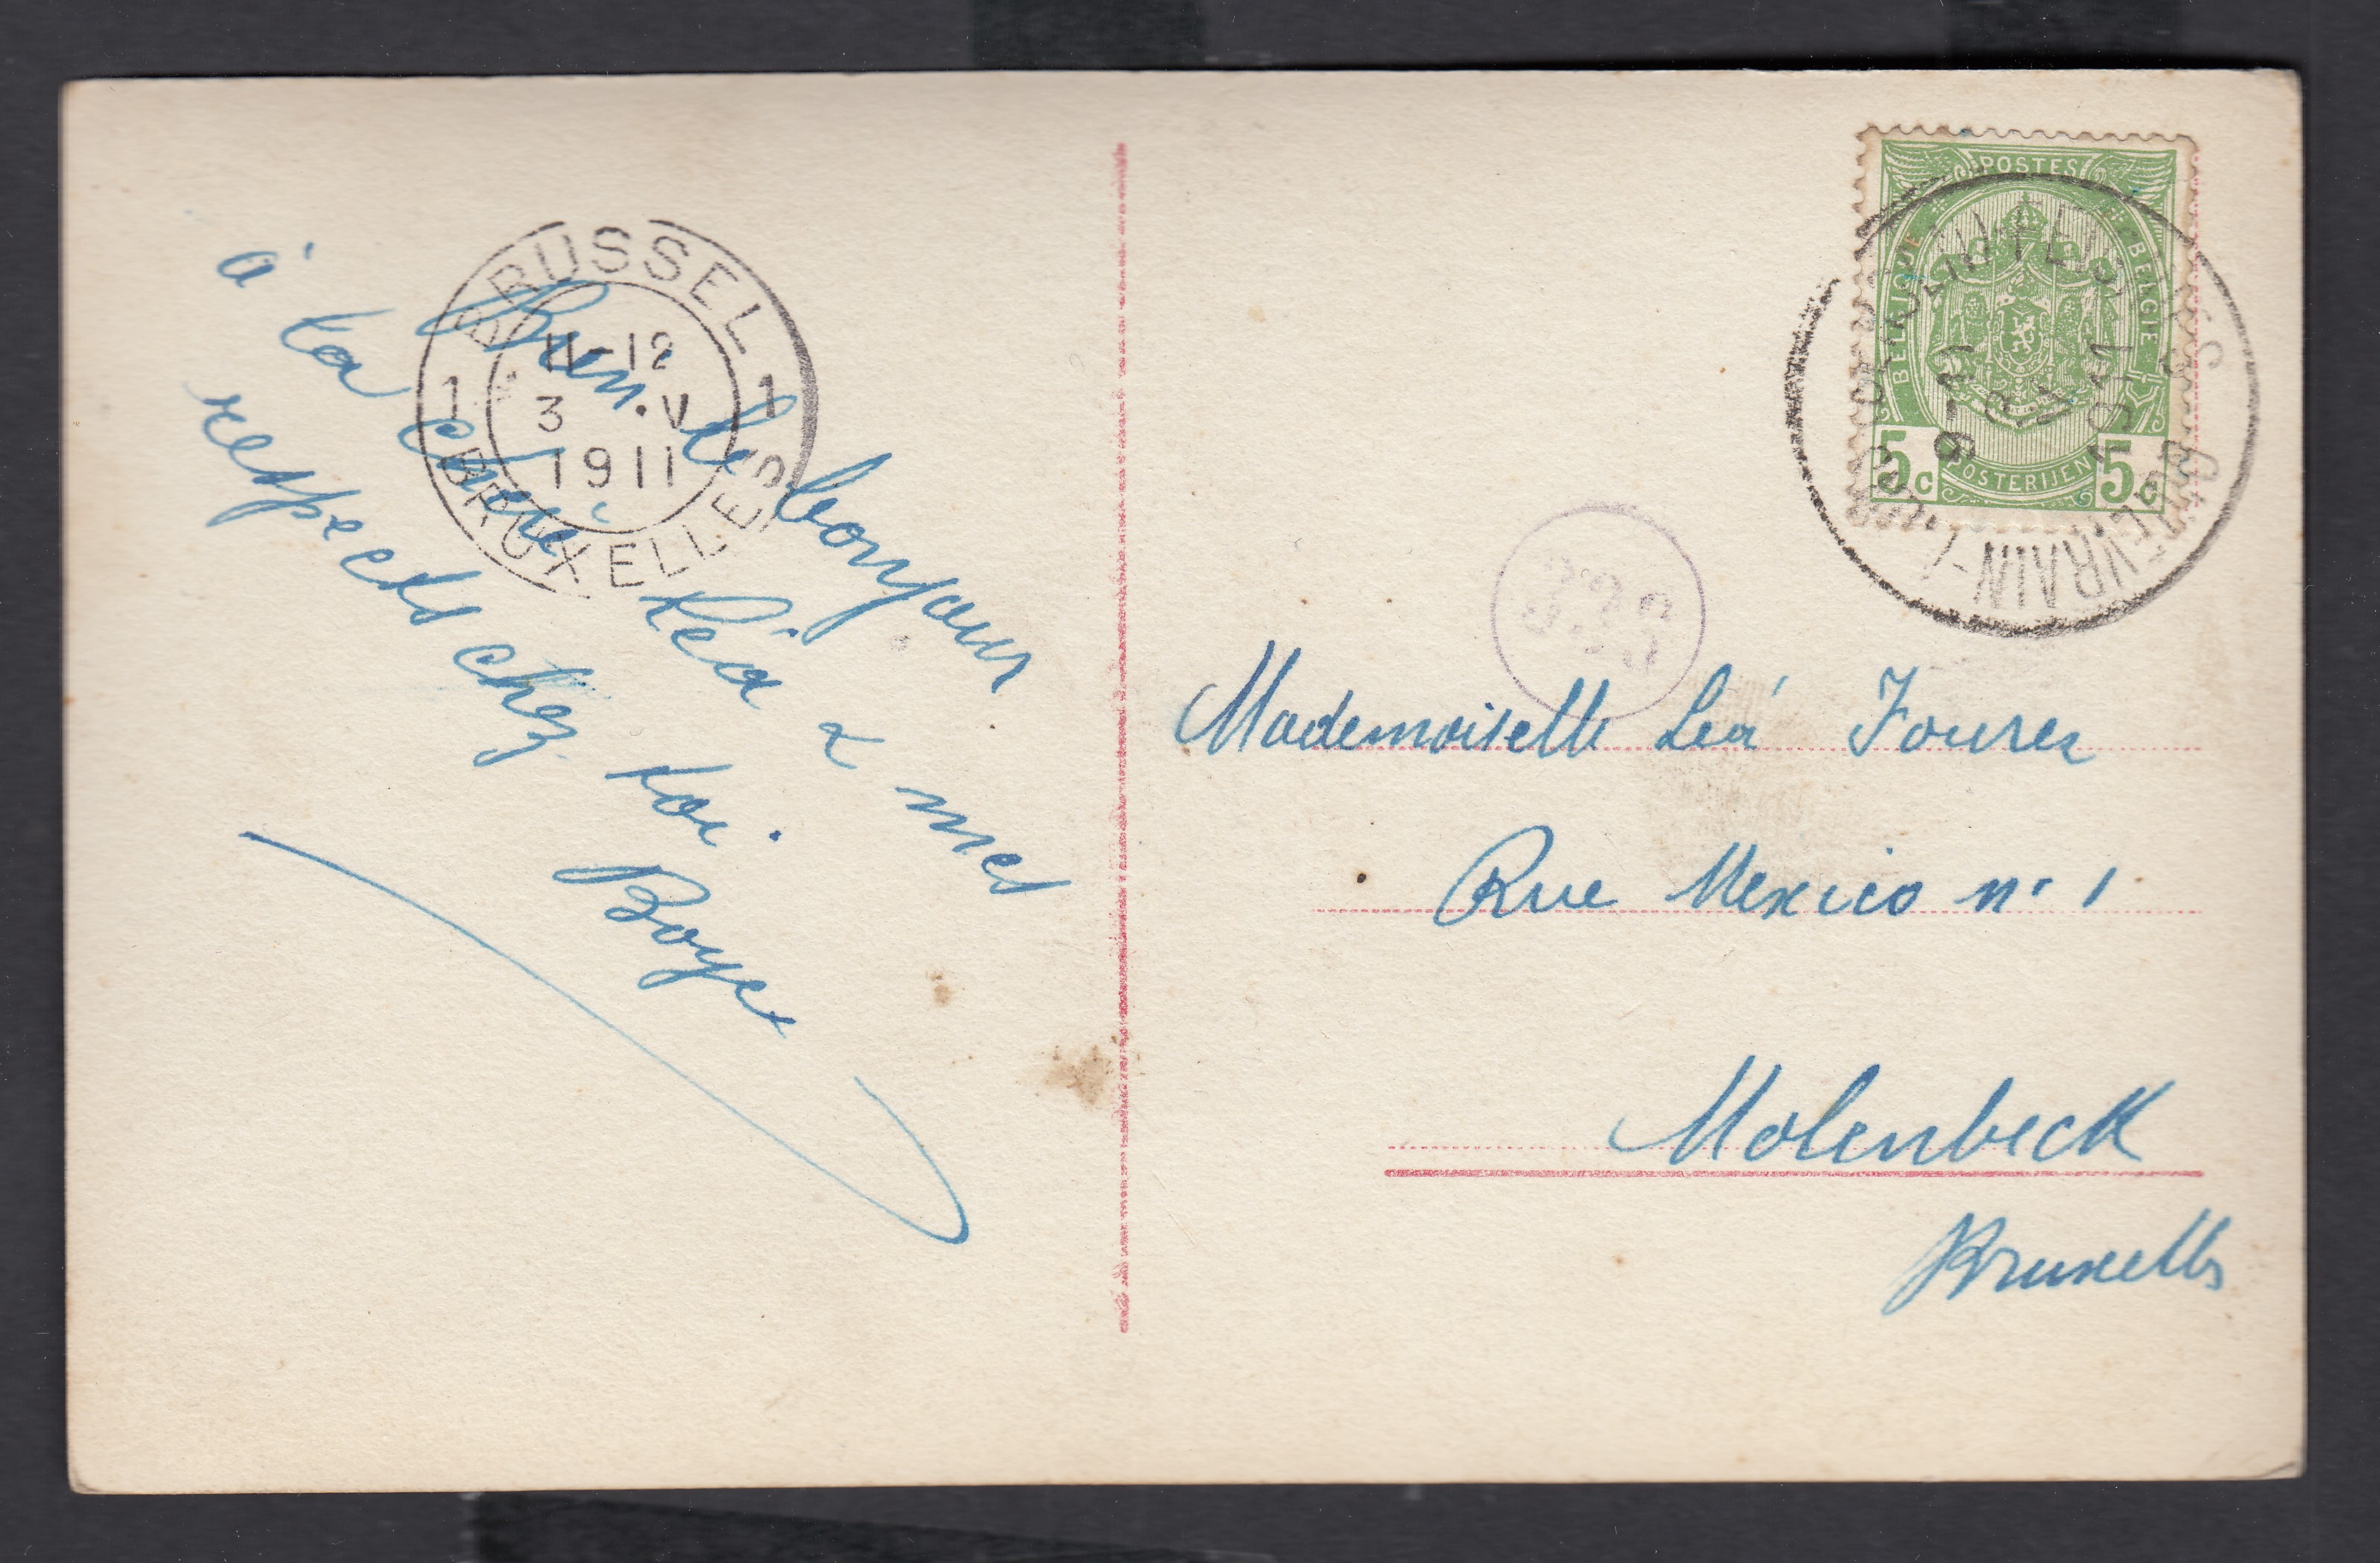 BRUSSEL
11-12
1 3 V 1
1911
BRUXELLES
Bien le bonjour
à ta chère Léa & mes
respects chez toi.
Boye
POSTES
BELGIQUE
BELGIE
POSTERIJEN
5c 5c
9-11
1911
Mademoiselle Leá
Rue Mexico n. 1
Molenbeck
Bruxelles